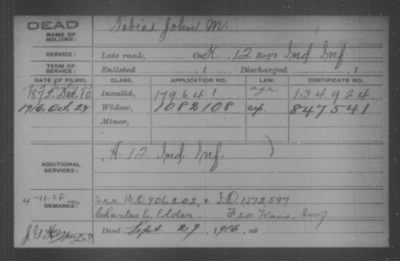 DEAD
NAME OF SOLDIER: Tobias, John M.
SERVICE: Late rank, Co. K, 12 Reg't Ind. Inf.
TERM OF SERVICE: Enlisted , 1 Discharged , 1
DATE OF FILING. CLASS. APPLICATION NO. LAW. CERTIFICATE NO.
Invalid, 179641 134924
1916 Oct. 24 Widow, 1082108 847541
Minor,
ADDITIONAL SERVICES: K. 12 Ind. Inf.
4-11-28
REMARKS: See W.O. 906202, & I.O. 1372597
Charles C. Elder. F 20 Kans. Inf.
Died Sept. 29, 1916, at